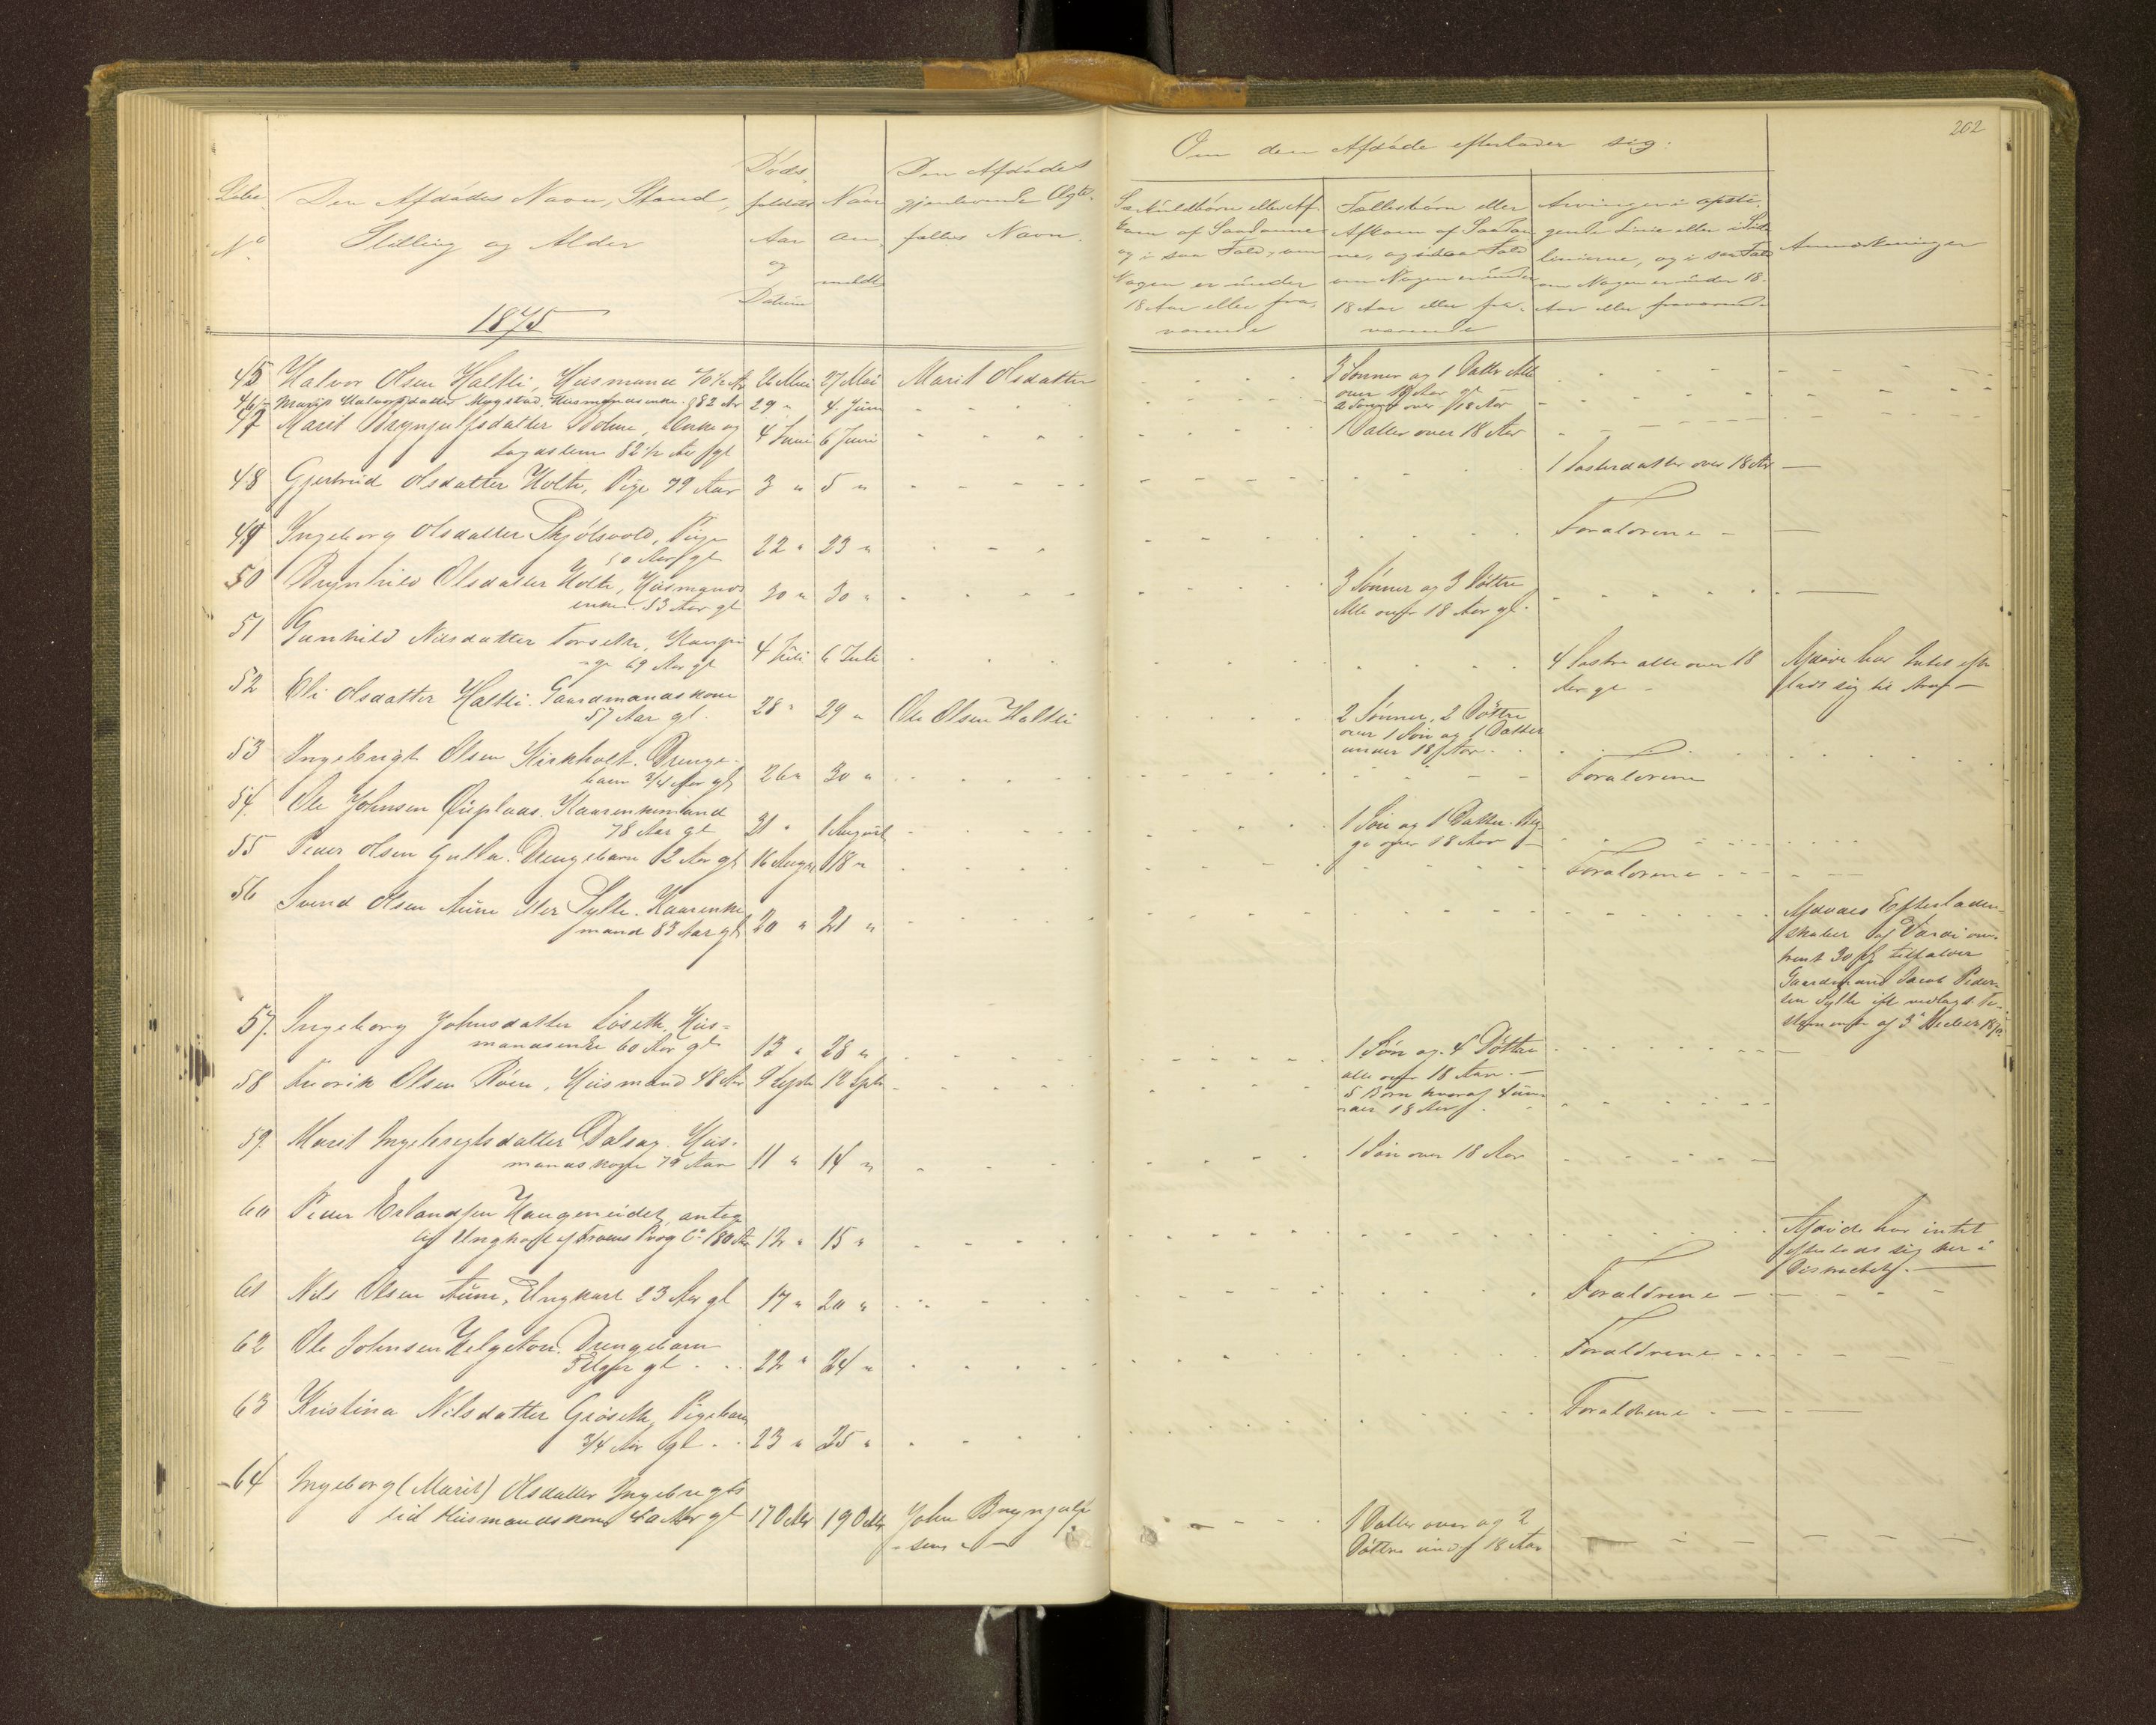 202
Om den Afdøde efterlader sig:
Løbe No
Den Afdødes Navn, Stand, Stilling og Alder
Dødsfaldets Aar og Datum
Naar anmeldt
Den Afdødes gjenlevende Ægtefælles Navn.
Særkuldbørn eller Afkom af Saadanne og i saa Fald, om Nogen er under 18 Aar eller fraværende
Fællesbørn eller Afkom af Saadanne, og i saa Fald om Nogen er under 18 Aar eller fraværende
Arvinger i opstigende Linie eller i Sidelinierne, og i saa Fald om Nogen er under 18 Aar eller fraværende
Anmærkninger
1875
45 Halvor Olsen Haltli, Huusmand 70 1/2 Aar 26 Mai 27 Mai Marit Olsdatter 3 Sønner og 1 Datter Alle
over 18 Aar gl
46 Halvorsdatter Mogstad. Huusmandsenke. 82 Aar 29 " 4. Juni 2 Sønner over 18 Aar
47 Marit Brynjulfsdatter Bolme, Enke og
Lægdslem 82 1/2 Aar gl 4 Juni 6 Juni 1 Datter over 18 Aar
48 Gjertrud Olsdatter Holte, Pige 79 Aar 3 " 5 " 1 Søsterdatter over 18 Aar
49 Ingeborg Olsdatter Skjølsvold, Pige
Aar gl 22 " 23 " Forældrene
50 Brynhild Olsdatter Holte, Huusmands
enke. 53 Aar gl 30 " 30 " 3 Sønner og 3 Døttre
Alle over 18 Aar gl.
51 Gunhild Nilsdatter Torseth,
69 Aar gl 4 Juli 6 Juli 4 Søstre alle over 18
Aar gl Afdøde har Intet efter
ladt sig til Arv
52 Eli Olsdatter Haltli. Gaardmandskone
57 Aar gl. 28 " 29 " Ole Olsen Haltli 2 Sønner, 2 Døttre
over 1 Søn og 1 Datter
under 18 Aar.
53 Ingebrigt Olsen Kirkholt. Drenge-
barn 3/4 Aar gl 26 " 30 " Forældrene
54. Ole Johnsen Øieplads. Kaarenkemand
78 Aar gl 31 " 1 August 1 Søn og 1 Datter. Beg-
ge over 18 Aar
55 Peder Olsen Gulla. Drengebarn 12 Aar gl 16 August 18 " Forældrene
56 Svend Olsen Aune eller Sylte. Kaarenke
mand 83 Aar gl 20 " 21 " Afdødes Efterladen-
skaber af Værdi om-
trent 30 tilfalder
Gaardmand Jacob Peder-
sen Sylte ifl vedlagt Te-
stamente af 3 
57. Ingeborg Johnsdatter Løseth, Huus-
mandsenke 60 Aar gl 13 " 28 " 1 Søn og 4 Døttre
alle over 18 Aar.
58 Fredrik Olsen Røen, Huusmand 48 Aar 9 Septr 12 Septr 5 Børn hvoraf 4 un-
der 18 Aar
59. Marit Ingebrigtsdatter Dalsæg. Huus-
mandskone 79 Aar 11 " 14 " 1 Søn over 18 Aar
60 Peder Erlandsen Haugeneidet,
12 " 15 " Afdøde har intet
efterladt sig her i
Districtet.
61 Nils Olsen Aune, Ungkarl 23 Aar gl 17 " 20 " Forældrene
62 Ole Johnsen Helgeton. Drengebarn
Uger gl 22 " 24 " Forældrene
63 Kristina Nilsdatter Grøseth, Pigebarn
3/4 Aar gl 23 " 25 " Forældrene
64 Ingeborg (Marit) Olsdatter Ingebregts
lid Huusmandskone 40 Aar gl 17 Octbr 19 Octbr John Brynjulf
sen 1 Datter over og 2
Døttre under 18 Aar